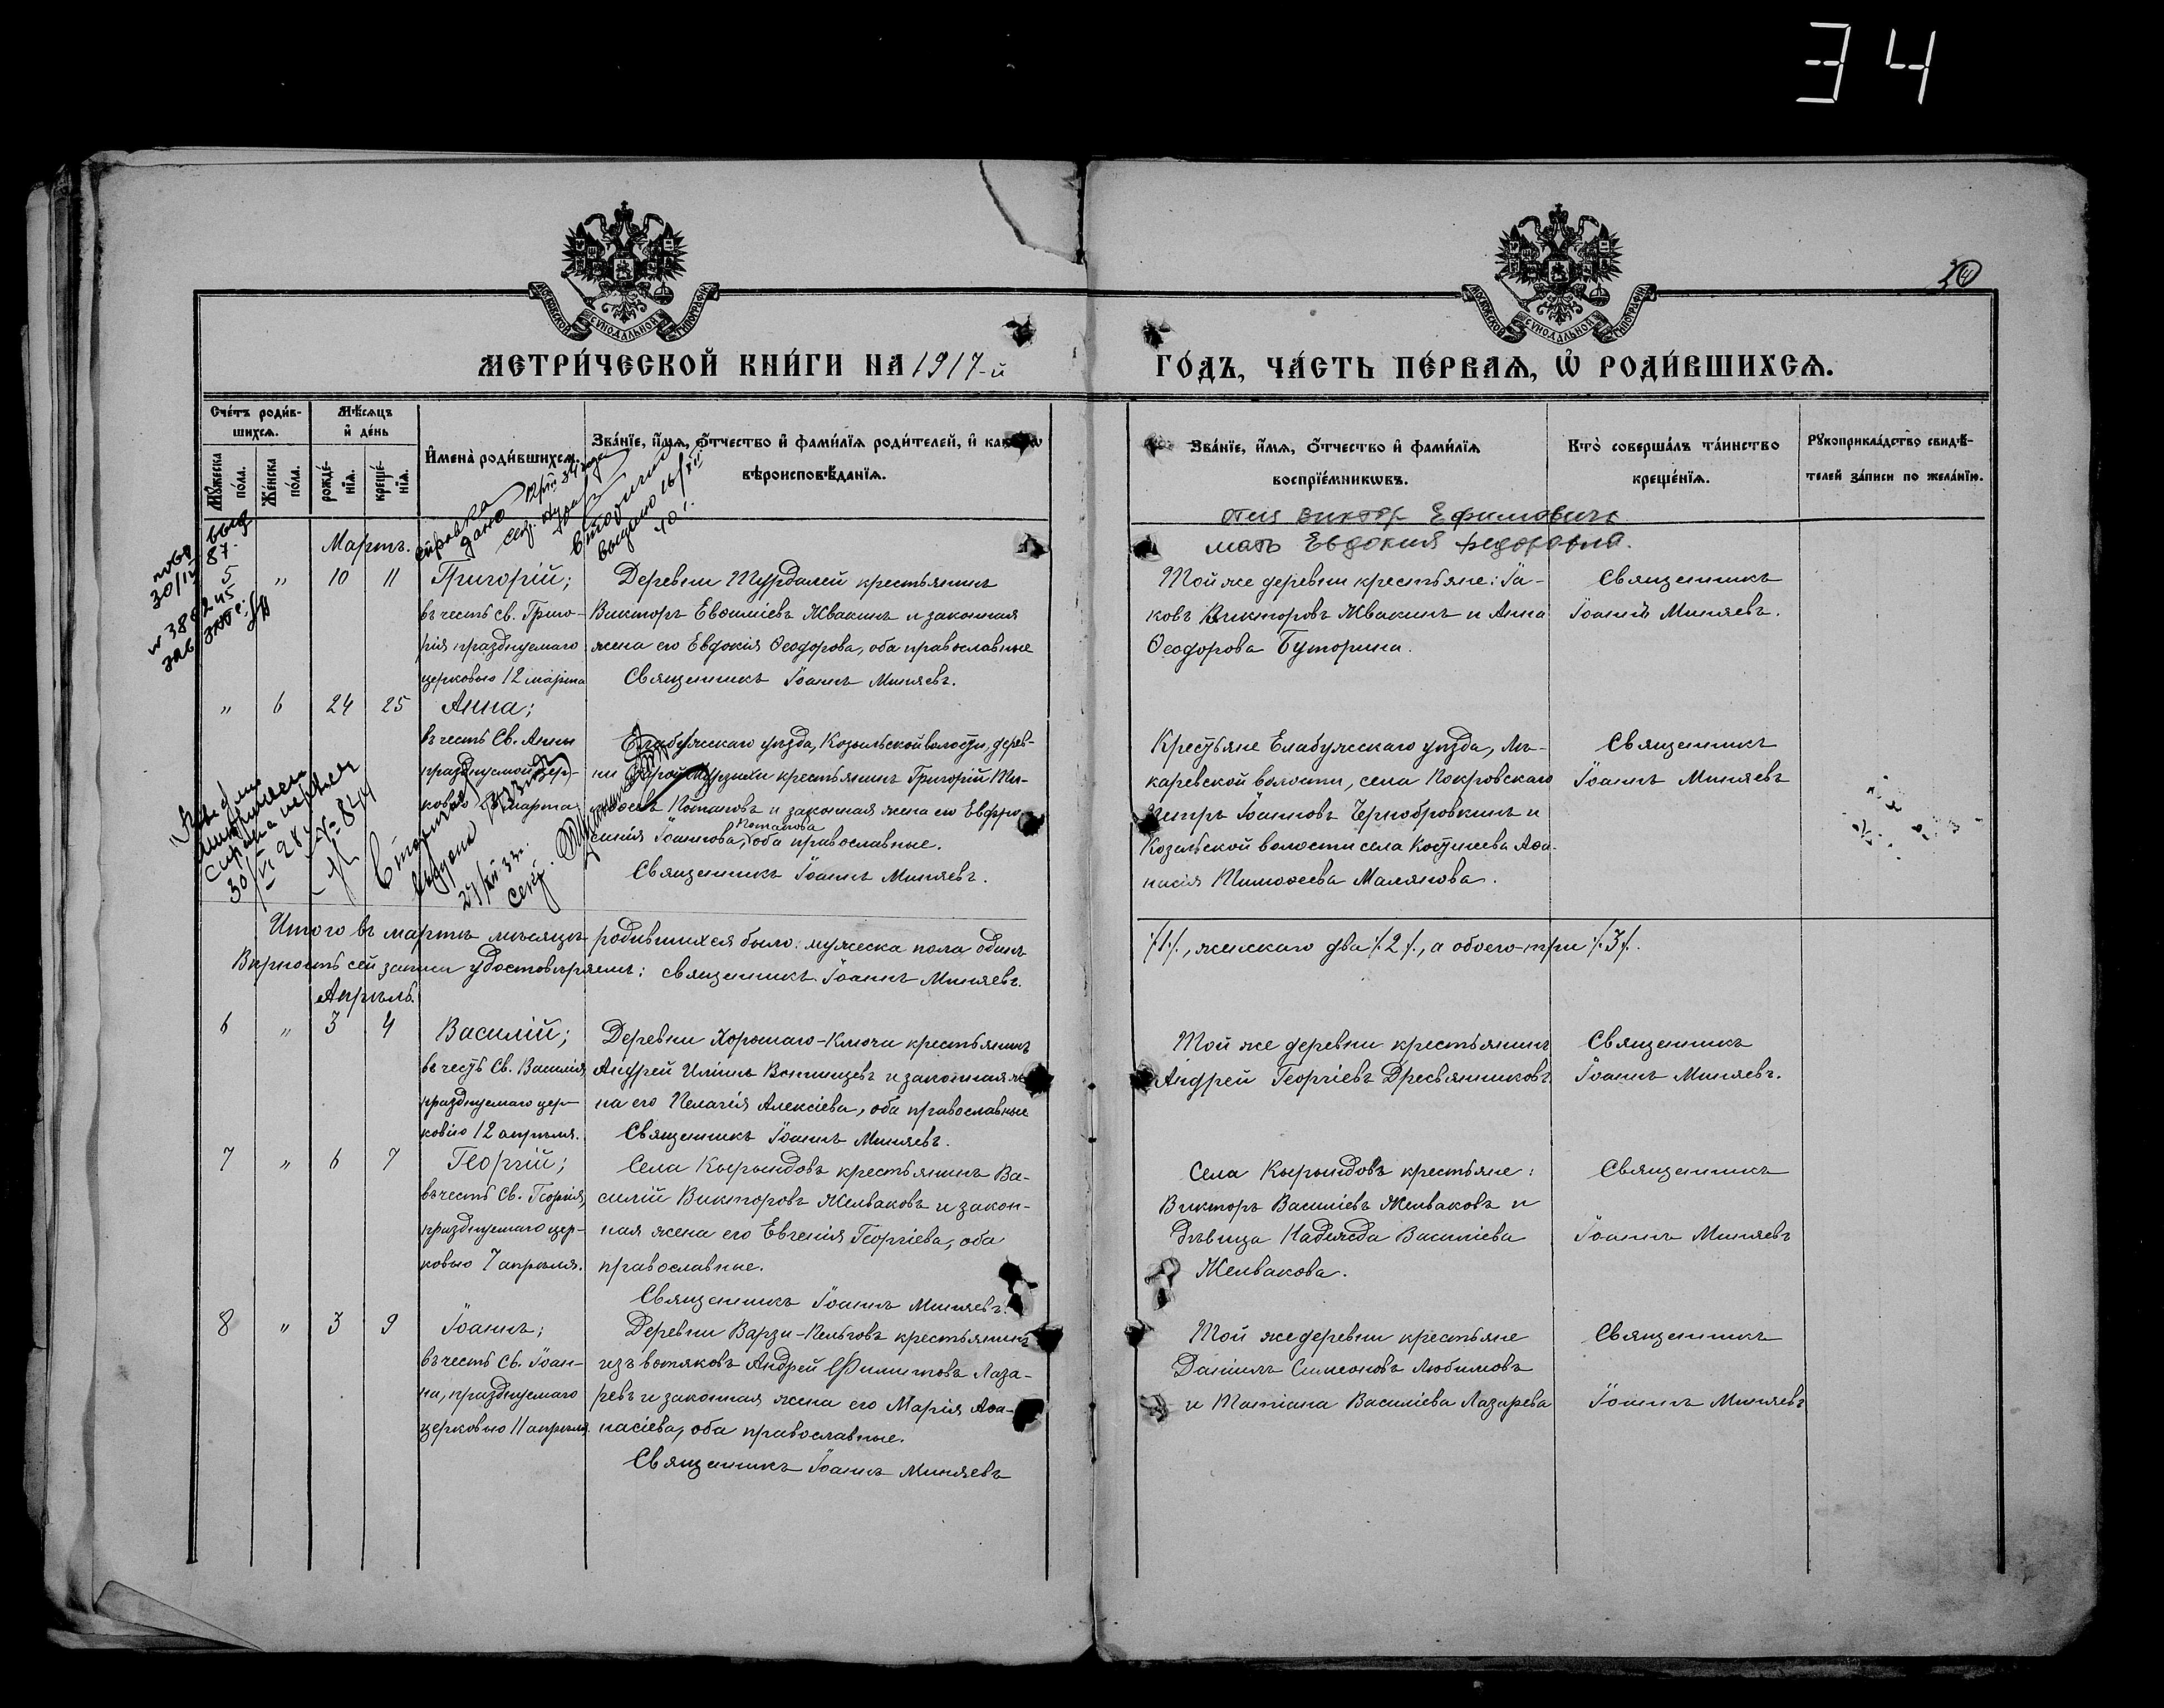 34
МОСКОВСКОЙ СѴНОДАЛЬНОЙ ТИПОГРАФІИ
МОСКОВСКОЙ СѴНОДАЛЬНОЙ ТИПОГРАФІИ
МЕТРИ́ЧЕСКОЙ КНИ́ГИ НА 1917-й
ГО́ДЪ, ЧА́СТЬ ПЕ́РВАѦ, Ѡ҆ РОДИ́ВШИХСѦ.
Сче́тъ роди́в-
шихсѧ.
Мѣ́сѧцъ
и҆ де́нь
Мꙋ́жеска по́ла.
Же́нска по́ла.
рожде́-
нїѧ.
креще́-
нїѧ.
И҆мена̀ роди́вшихсѧ.
Зва́нїе, и҆́мѧ, ѻ҆́тчество и҆ фами́лїѧ роди́телей, и҆
вѣроисповѣ́данїѧ.
Зва́нїе, и҆́мѧ, ѻ҆́тчество и҆ фами́лїѧ
воспрїе́мникѡвъ.
Кто̀ соверша́лъ та́инство
креще́нїѧ.
Рꙋкоприкла́дство свидѣ́-
телей за́писи по жела́нїю.
справка
дано
вторично
выдано 16/XII
40 г.
отец Виктор Ефимович
мать Евдокия Федоровна.
Мартъ.
5 " 10 11 Григорій;
въ честь св. Григо-
рія празднуемаго
церковью 12 марта
Деревни Турдалей крестьянинъ
Викторъ Евѳиміевъ Жвакинъ и законная
жена его Евдокія Ѳеодорова, оба православные
Священникъ Іоаннъ Миняевъ.
Той же деревни крестьяне: Іа-
ковъ Викторовъ Жвакинъ и Анна
Ѳеодорова Буторина.
Священникъ
Іоаннъ Миняевъ.
" 6 24 25 Анна;
въ честь Св. Анны
празднуемой цер-
ковью марта
Елабужскаго уѣзда, Козыльской волости, дерев-
ни крестьянинъ Григорій Ти-
моѳеевъ Потаповъ и законная жена его Евфро-
синія Іоаннова Потапова, оба православные.
Священникъ Іоаннъ Миняевъ.
Крестьяне Елабужскаго уѣзда, Мъ-
каревской волости, села Покровскаго
Петръ Іоанновъ Чернобровкинъ и
Козыльской волости села Костенеева Аѳа-
насія Тимоѳеева Малянова.
Священникъ
Іоаннъ Миняевъ
Вторично выдана
27/XII 33 г.
Секр.
Итого въ мартѣ мѣсяцѣ родившихся было: мужеска пола одинъ
/.1./, женскаго два /.2./, а обоего-три /.3./.
Вѣрность сей записи удостовѣряемъ: священникъ Іоаннъ Миняевъ.
Апрѣль.
6 " 3 4 Василій;
въ честь Св. Василія,
празднуемаго цер-
ковію 12 апрѣля.
Деревни Хорошаго-Ключа крестьянинъ
Андрей Ильинъ Вонтинцевъ и законная же-
на его Пелагія Алексіева, оба православные
Священникъ Іоаннъ Миняевъ.
Той же деревни крестьянинъ
Андрей Георгіевъ Дресвянниковъ.
Священникъ
Іоаннъ Миняевъ.
7 " 6 7 Георгій;
въ честь Св. Георгія,
празднуемаго цер-
ковью 7 апрѣля.
Села Кырындовъ крестьянинъ Ва-
силій Викторовъ Желваковъ и закон-
ная жена его Евгенія Георгіева, оба
православные.
Священникъ Іоаннъ Миняевъ.
Села Кырындовъ крестьяне:
Викторъ Василіевъ Желваковъ и
дѣвица Надежда Василіева
Желвакова.
Священникъ
Іоаннъ Миняевъ
8 " 3 9 Іоаннъ;
въ честь Св. Іоан-
на, празднуемаго
церковью 11 апрѣля.
Деревни Варзи-Пельговъ крестьянинъ
изъ вотяковъ Андрей Филипповъ Лаза-
ревъ и законная жена его Марія Аѳа-
насіева, оба православные.
Священникъ Іоаннъ Миняевъ
Той же деревни крестьяне
Даніилъ Симеоновъ Любимовъ
и Татіана Василіева Лазарева
Священникъ
Іоаннъ Миняевъ